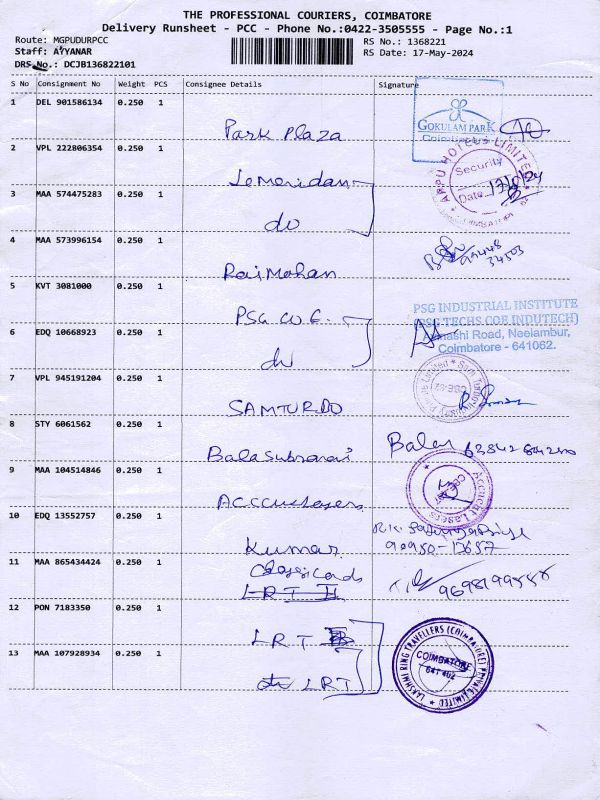 THE PROFESSIONAL COURIERS, COIMBATORE
Delivery Runsheet - PCC - Phone No.:0422-3505555 - Page No.:1
Route: MGPUDURPCC
RS No.: 1368221
Staff: AYYANAR
RS Date: 17-May-2024
DRS No.: DCJB136822101
S No Consignment No Weight PCS Consignee Details Signature
1 DEL 901586134 0.250 1
Park Plaza
GOKULAM PARK
Coimbatore
2 VPL 222806354 0.250 1
Lemeridan
APPU HOTELS LIMITED
Security
Date
3 MAA 574475283 0.250 1
do
4 MAA 573996154 0.250 1
RajMohan
5 KVT 3081000 0.250 1
PSG
PSG INDUSTRIAL INSTITUTE
(PSG TECHS COE INDUTECH)
Avinashi Road, Neelambur,
Coimbatore - 641062.
6 EDQ 10668923 0.250 1
do
7 VPL 945191204 0.250 1
SAMTURBO
8 STY 6061562 0.250 1
9 MAA 104514846 0.250 1
10 EDQ 13552757 0.250 1
Kumar
11 MAA 865434424 0.250 1
12 PON 7183350 0.250 1
LRT
LAKSHMI RING TRAVELLERS (COIMBATORE) PRIVATE LIMITED
COIMBATORE
641 402
13 MAA 107928934 0.250 1
LRT